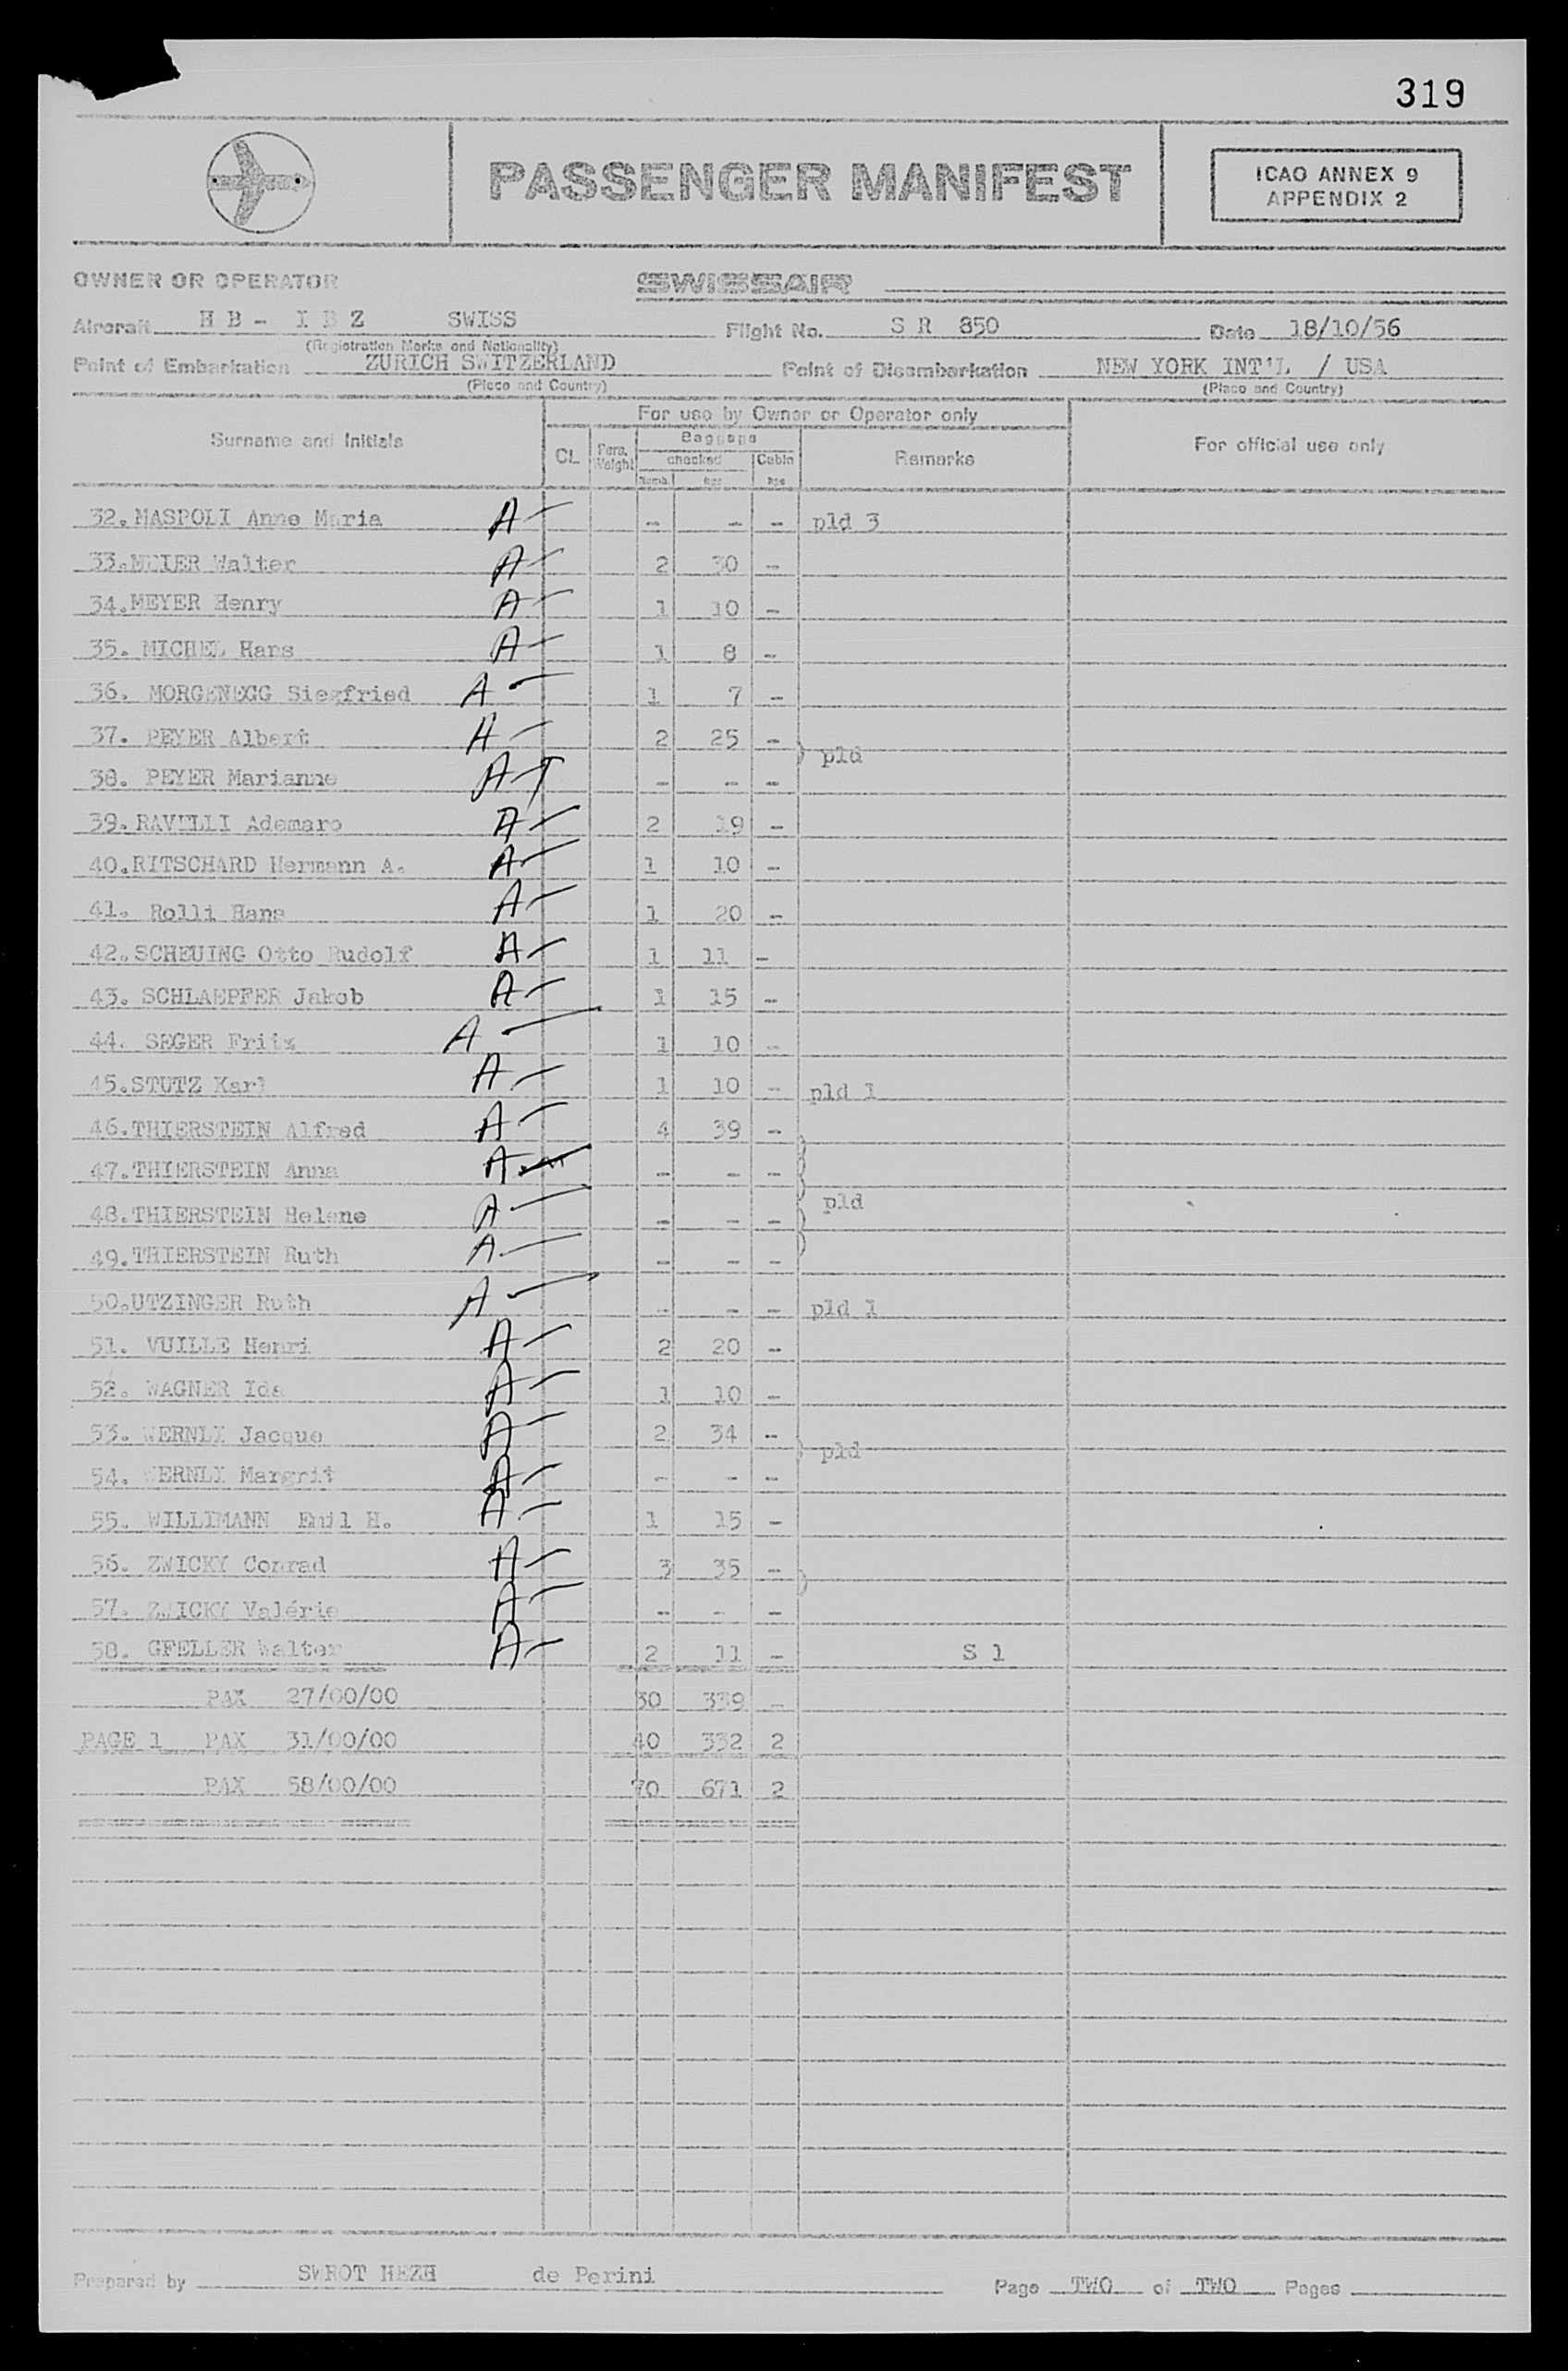 319
PASSENGER MANIFEST
ICAO ANNEX 9
APPENDIX 2
OWNER OR OPERATOR SWISSAIR
Aircraft H B - I B Z SWISS Flight No. S R 850 Date 18/10/56
(Registration Marks and Nationality)
Point of Embarkation ZURICH SWITZERLAND Point of Disembarkation NEW YORK INT'L / USA
(Place and Country) (Place and Country)
For use by Owner or Operator only
Surname and Initials CL Pers. Weight Baggage Remarks For official use only
checked Cabin
Numb. kgs kgs
32. MASPOLI Anne Maria A - - - pld 3
33. MEIER Walter A 2 30 -
34. MEYER Henry A 1 10 -
35. MICHEL Hans A 1 8 -
36. MORGENEGG Siegfried A 1 7 -
37. PEYER Albert A 2 25 - } pld
38. PEYER Marianne A - - -
39. RAVELLI Ademaro A 2 19 -
40. RITSCHARD Hermann A. A 1 10 -
41. Rolli Hans A 1 20 -
42. SCHEUING Otto Rudolf A 1 11 -
43. SCHLAEPFER Jakob A 1 15 -
44. SEGER Fritz A 1 10 -
45. STUTZ Karl A 1 10 - pld 1
46. THIERSTEIN Alfred A 4 39 -
47. THIERSTEIN Anna A - - -
48. THIERSTEIN Helene A - - - } pld
49. THIERSTEIN Ruth A - - -
50. UTZINGER Ruth A - - - pld 1
51. VUILLE Henri A 2 20 -
52. WAGNER Ida A 1 10 -
53. WERNLI Jacque A 2 34 - } pld
54. WERNLI Margrit A - - -
55. WILLIMANN Emil H. A 1 15 -
56. ZWICKY Conrad A 3 35 - }
57. ZWICKY Valérie A - - -
58. GFELLER Walter A 2 11 - S 1
PAX 27/00/00 30 339 -
PAGE 1 PAX 31/00/00 40 332 2
PAX 58/00/00 70 671 2
Prepared by SWROT HEZH de Perini Page TWO of TWO Pages